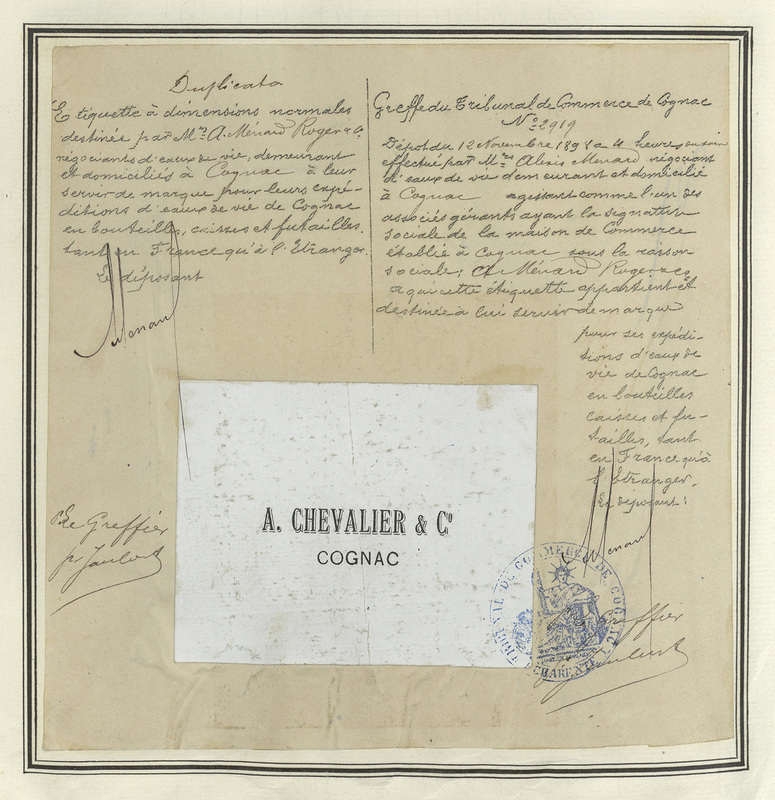 Duplicata
Etiquette à dimensions normales
destinée par Mrs A. Ménard Roger & Co
négociants d'eaux de vie, demeurant
et domiciliés à Cognac à leur
servir de marque pour leurs expé-
ditions d'eaux de vie de Cognac
en bouteilles, caisses et futailles,
tant en France qu'à l'Etranger.
Le déposant
Menard
Le Greffier
Greffe du Tribunal de Commerce de Cognac
No 2919
Dépôt du 12 Novembre 1898 à 4 heures du soir
effectué par Mr Alexis Menard négociant
d'eaux de vie demeurant et domicilié
à Cognac agissant comme l'un des
associés gérants ayant la signature
sociale de la maison de Commerce
établie à Cognac sous la raison
sociale: A Ménard Roger & Co
à qui cette étiquette appartient et
destinée à lui servir de marque
pour ses expédi-
tions d'eaux de
vie de Cognac
en bouteilles
caisses et fu-
tailles, tant
en France qu'à
l'Etranger.
Le déposant:
Menard
Greffier
A. CHEVALIER & Co
COGNAC
TRIBAL DE COMMERCE DE COGNAC
CHARENTE